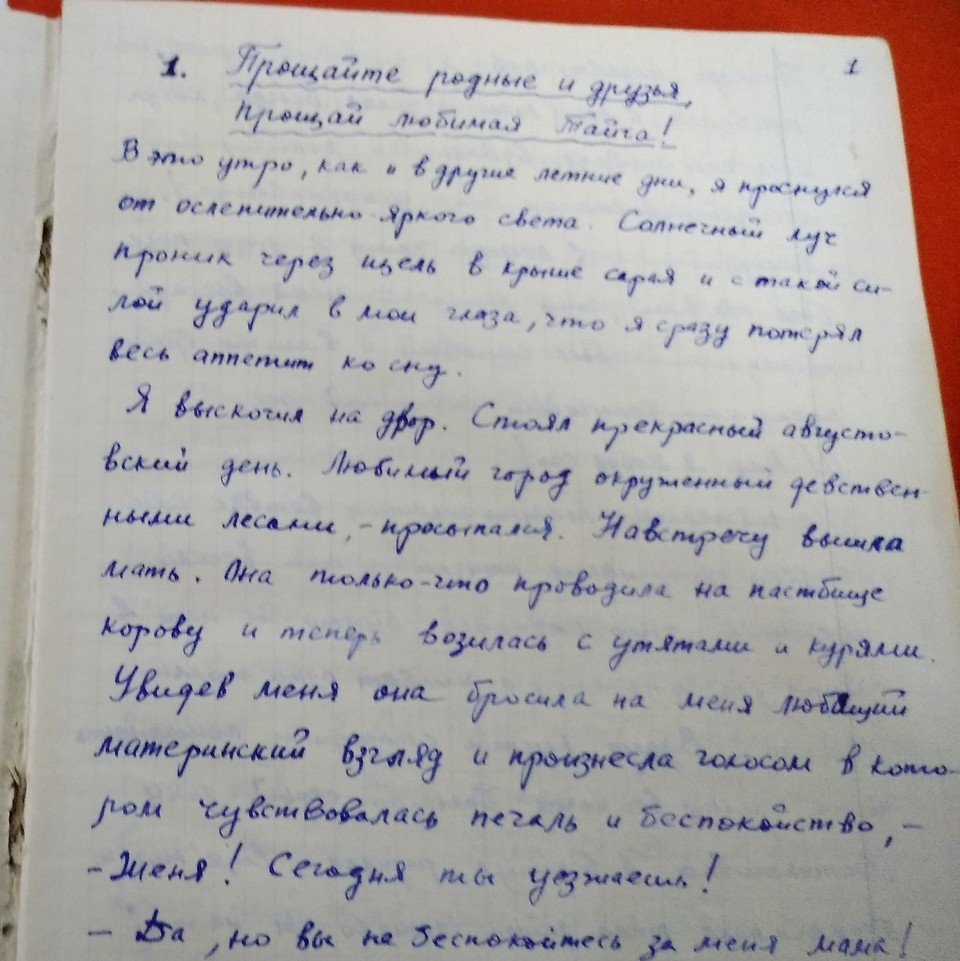 1
1. Прощайте родные и друзья,
Прощай любимая Тайга!
В это утро, как и в другие летние дни, я проснулся
от ослепительно-яркого света. Солнечный луч
проник через щель в крыше сарая и с такой си-
лой ударил в мои глаза, что я сразу потерял
весь аппетит ко сну.
Я выскочил на двор. Стоял прекрасный августо-
вский день. Любимый город окруженный девствен-
ными лесами, - просыпался. Навстречу вышла
мать. Она только-что проводила на пастбище
корову и теперь возилась с утятами и курями.
Увидев меня она бросила на меня любящий
материнский взгляд и произнесла голосом в кото-
ром чувствовалась печаль и беспокойство, -
- Женя! Сегодня ты уезжаешь!
- Да, но вы не беспокойтесь за меня мама!